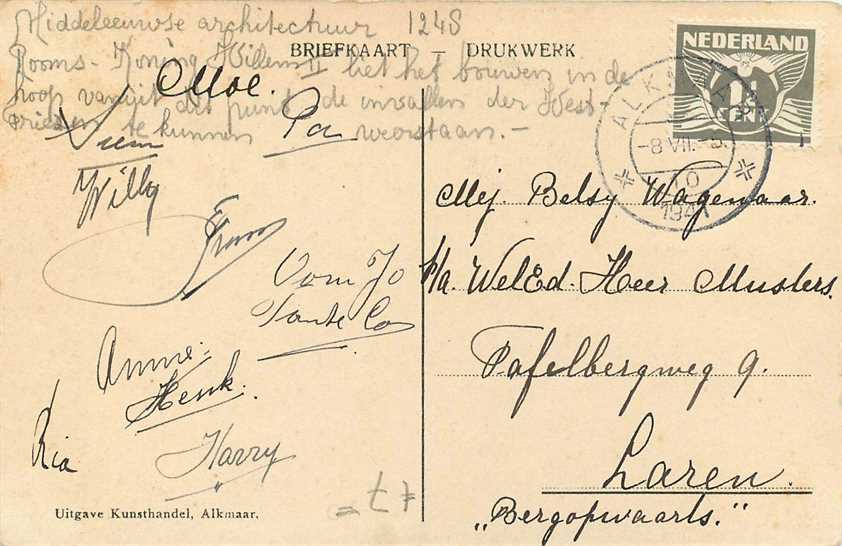 Middeleeuwse architectuur 1248
BRIEFKAART – DRUKWERK
Rooms-Koning Willem II liet het bouwen in de
hoop vanuit dit punt de invallen der West-
Friezen te kunnen weerstaan.-
Moe.
Pa
Willy
Frans
Oom Jo
Tante Co
Annie.
Henk.
Ria
Harry
= 7 F
Uitgave Kunsthandel, Alkmaar.
NEDERLAND
1½
CENT
ALKMAAR
-8 VII.
1941
Mej Betsy Wagenaar.
p/a. WelEd. Heer Musters.
Tafelbergweg 9.
Laren.
„Bergopwaarts."